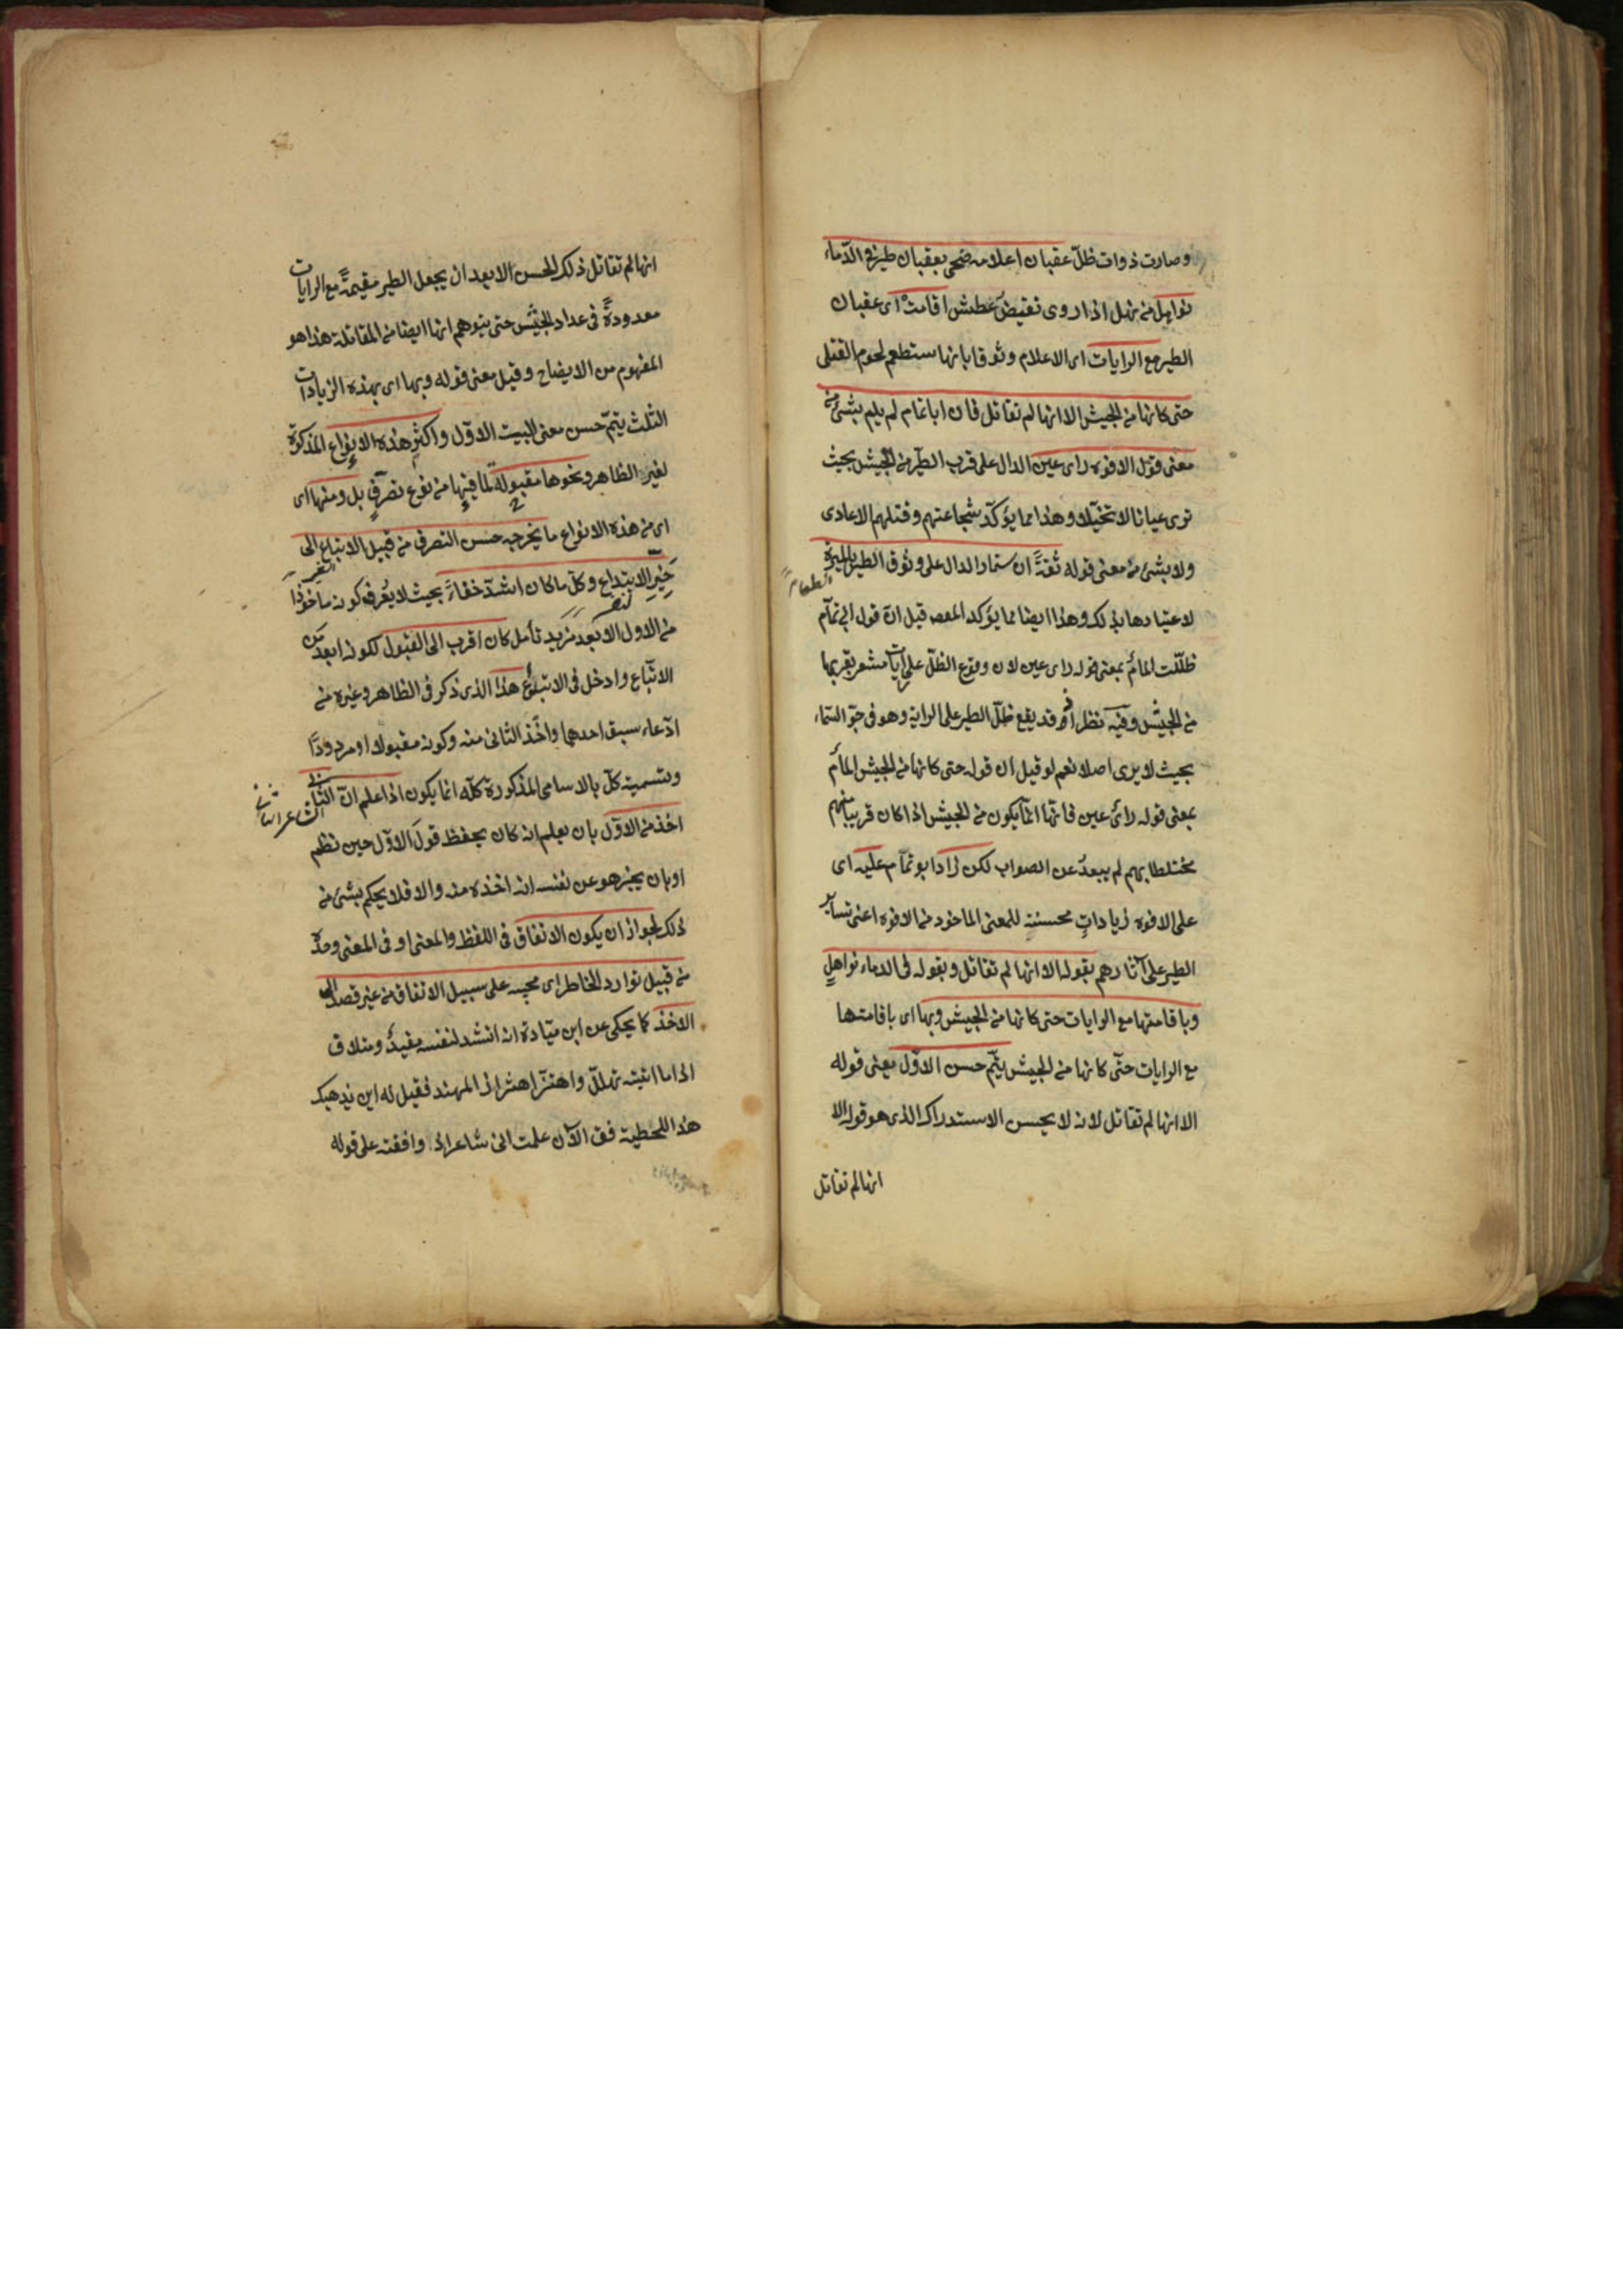 وصارت ذوات ظلّ عقبان اعلامه ضحى بعقبان طير فى الدّماء
نواهل من نهل اذا روى نقيض عطش اقامت اى عقبان
الطير مع الرايات اى الاعلام وثوقا بانها ستطعم لحوم القتلى
حتى كانها من الجيش الا انها لم تقاتل فان ابا تمام لم يلم بشئ من
معنى قول الافوه راى عين الدال على قرب الطير من الجيش بحيث
ترى عيانا لا تخيّلا وهذا مما يؤكّد شجاعتهم وقتلهم الاعادى
ولا بشئ من معنى قوله ثقةً ان ستمار الدال على وثوق الطير بالميرة
الطعام
لاعتيادها بذلك وهذا ايضا مما يؤكد المقصود قيل انّ قول ابى تمّام
ظلّلت المام بمعنى قوله راى عين لان وقوع الظلّ على الرايات مشعر بقربها
من الجيش وفيه نظر اذ قد يقع ظلّ الطير على الراية وهو فى جوّ السّماء
بحيث لا يرى اصلا نعم لو قيل ان قوله حتى كانها من الجيش المام
بمعنى قوله رائ عين فانّها انّما يكون من الجيش اذا كان قريبا منهم
مختلطا بهم لم يبعد عن الصواب لكن زاد ابو تمّام عليه اى
على الافوه زياداتٍ محسنة للمعنى الماخوذ من الافوه اعنى تساير
الطير على آثارهم بقوله الا انها لم تقاتل وبقوله فى الدماء نواهل
وباقامتها مع الرايات حتى كانها من الجيش وبها اى باقامتها
مع الرايات حتّى كانها من الجيش يتمّ حسن الاوّل يعنى قوله
الا انها لم تقاتل لانه لا يحسن الاستدراك الذى هو قوله الا
انها لم تقاتل
انها لم تقاتل ذلك الحسن الا بعد ان يجعل الطير مقيمةً مع الرايات
معدودةً فى عداد الجيش حتى يتوهم انها ايضا من المقاتلة هذا هو
المفهوم من الايضاح وقيل معنى قوله وبها اى بهذه الزيادات
الثلث يتمّ حسن معنى البيت الاوّل واكثر هذه الانواع المذكورة
لغير الظاهر ونحوها مقبولة لما فيها من نوع تصرّفٍ بل ومنها اى
اى من هذه الانواع ما يخرجه حسن التصرف من قبيل الاتباع الى
حَيّزِ الابتداع وكلّ ما كان اشدّ خفاءً بحيث لا يُعرف كونه ماخوذا
من الاول الا بعد مزيد تأمل كان اقرب الى القبول لكونه ابعد من
الاتّباع وادخل فى الابتداع هذا الذى ذكر فى الظاهر وغيره من
ادّعاء سبق احدهما واخذ الثانى منه وكونه مقبولا او مردودًا
وتسمية كلّ بالاسامى المذكورة كلّه انما يكون اذا علم انّ الثانى
الشاعر الثانى
اخذ من الاوّل بان يعلم انه كان يحفظ قول الاوّل حين نظم
او بان يخبر هو عن نفسه انه اخذه منه والا فلا يحكم بشئ من
ذلك لجواز ان يكون الاتفاق فى اللفظ والمعنى او فى المعنى وحده
من قبيل توارد الخاطر اى مجيه على سبيل الاتفاق من غير قصد الى
الاخذ كما يحكى عن ابن ميّادة انه انشد لنفسه مفيدٌ ومتلاف
اذا ما اتيته تهلّل واهتزّ اهتزاز المهند فقيل له اين يذهبك
هذا للحطيئة فقال الآن علمت انى شاعر اذ وافقته على قوله